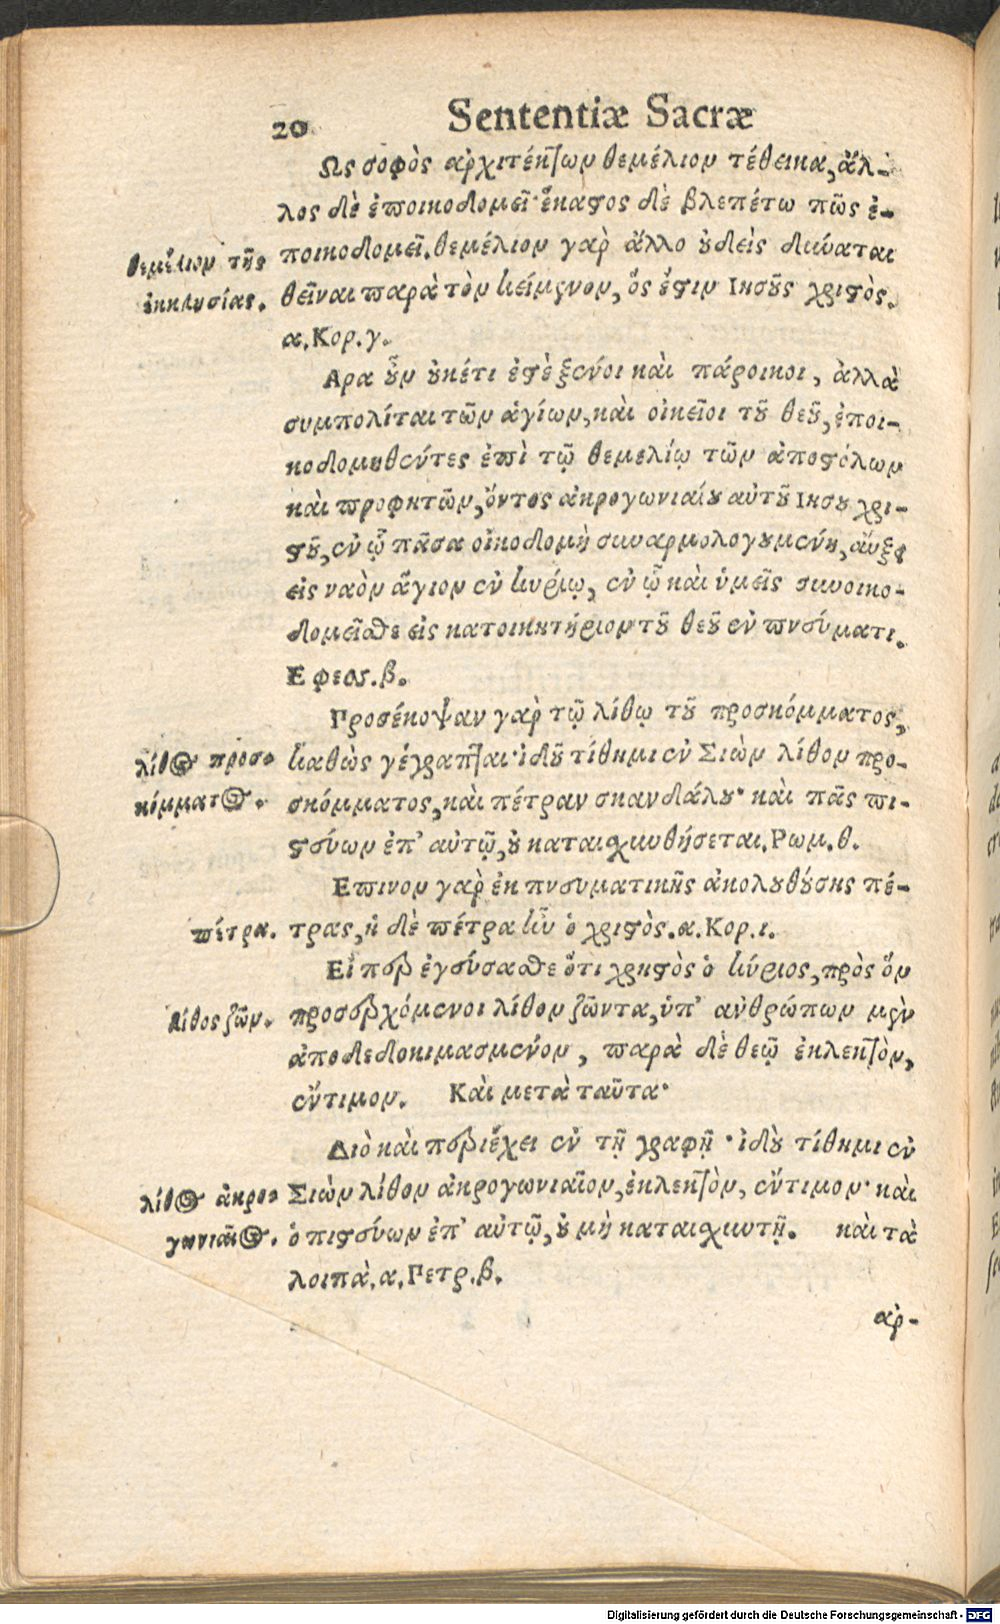 20 Sententiæ Sacræ
Ως σοφὸς ἀρχιτέκτων θεμέλιον τέθεικα, ἄλ-
λος δὲ ἐποικοδομεῖ· ἕκαστος δὲ βλεπέτω πῶς ἐ-
ποικοδομεῖ. θεμέλιον γὰρ ἄλλο οὐδεὶς δύναται
θεμέλιον τῆς
θεῖναι παρὰ τὸν κείμενον, ὅς ἐστιν Ιησοῦς χριστὸς.
ἐκκλησίας.
α. Κορ. γ.
Αρα οὖν οὐκέτι ἐστὲ ξένοι καὶ πάροικοι, ἀλλὰ
συμπολίται τῶν ἁγίων, καὶ οἰκεῖοι τοῦ θεοῦ, ἐποι-
κοδομηθέντες ἐπὶ τῷ θεμελίῳ τῶν ἀποστόλων
καὶ προφητῶν, ὄντος ἀκρογωνιαίου αὐτοῦ Ιησου χρι-
στοῦ, ἐν ᾧ πᾶσα οἰκοδομὴ συναρμολογουμένη, αὔξει
εἰς ναὸν ἅγιον ἐν κυρίῳ, ἐν ᾧ καὶ ὑμεῖς συνοικο-
δομεῖσθε εἰς κατοικητήριον τοῦ θεοῦ ἐν πνεύματι.
Εφεσ. β.
Προσέκοψαν γὰρ τῷ λίθῳ τοῦ προσκόμματος,
λίθος προσ-
καθὼς γέγραπται· ἰδοῦ τίθημι ἐν Σιὼν λίθον προ-
κόμματος.
σκόμματος, καὶ πέτραν σκανδάλου· καὶ πᾶς πι-
στεύων ἐπ' αὐτῷ, οὐ καταισχυνθήσεται. Ρωμ. θ.
Επινον γὰρ ἐκ πνευματικῆς ἀκολουθούσης πέ-
πέτρα.
τρας, ἡ δὲ πέτρα ἦν ὁ χριστὸς. α. Κορ. ι.
Εἴ περ ἐγεύσασθε ὅτι χρηστὸς ὁ κύριος, πρὸς ὃν
λίθος ζῶν.
προσερχόμενοι λίθον ζῶντα, ὑπ' ἀνθρώπων μὲν
ἀποδεδοκιμασμένον, παρὰ δὲ θεῷ ἐκλεκτὸν,
ἔντιμον. Καὶ μετὰ ταῦτα·
Διὸ καὶ περιέχει ἐν τῇ γραφῇ· ἰδοὺ τίθημι ἐν
λίθος ἀκρο-
Σιὼν λίθον ἀκρογωνιαῖον, ἐκλεκτὸν, ἔντιμον· καὶ
γωνιαῖος.
ὁ πιστεύων ἐπ' αὐτῷ, οὐ μὴ καταισχυντῇ. καὶ τὰ
λοιπὰ. α. Πετρ. β.
ἀρ-
Digitalisierung gefördert durch die Deutsche Forschungsgemeinschaft - DFG